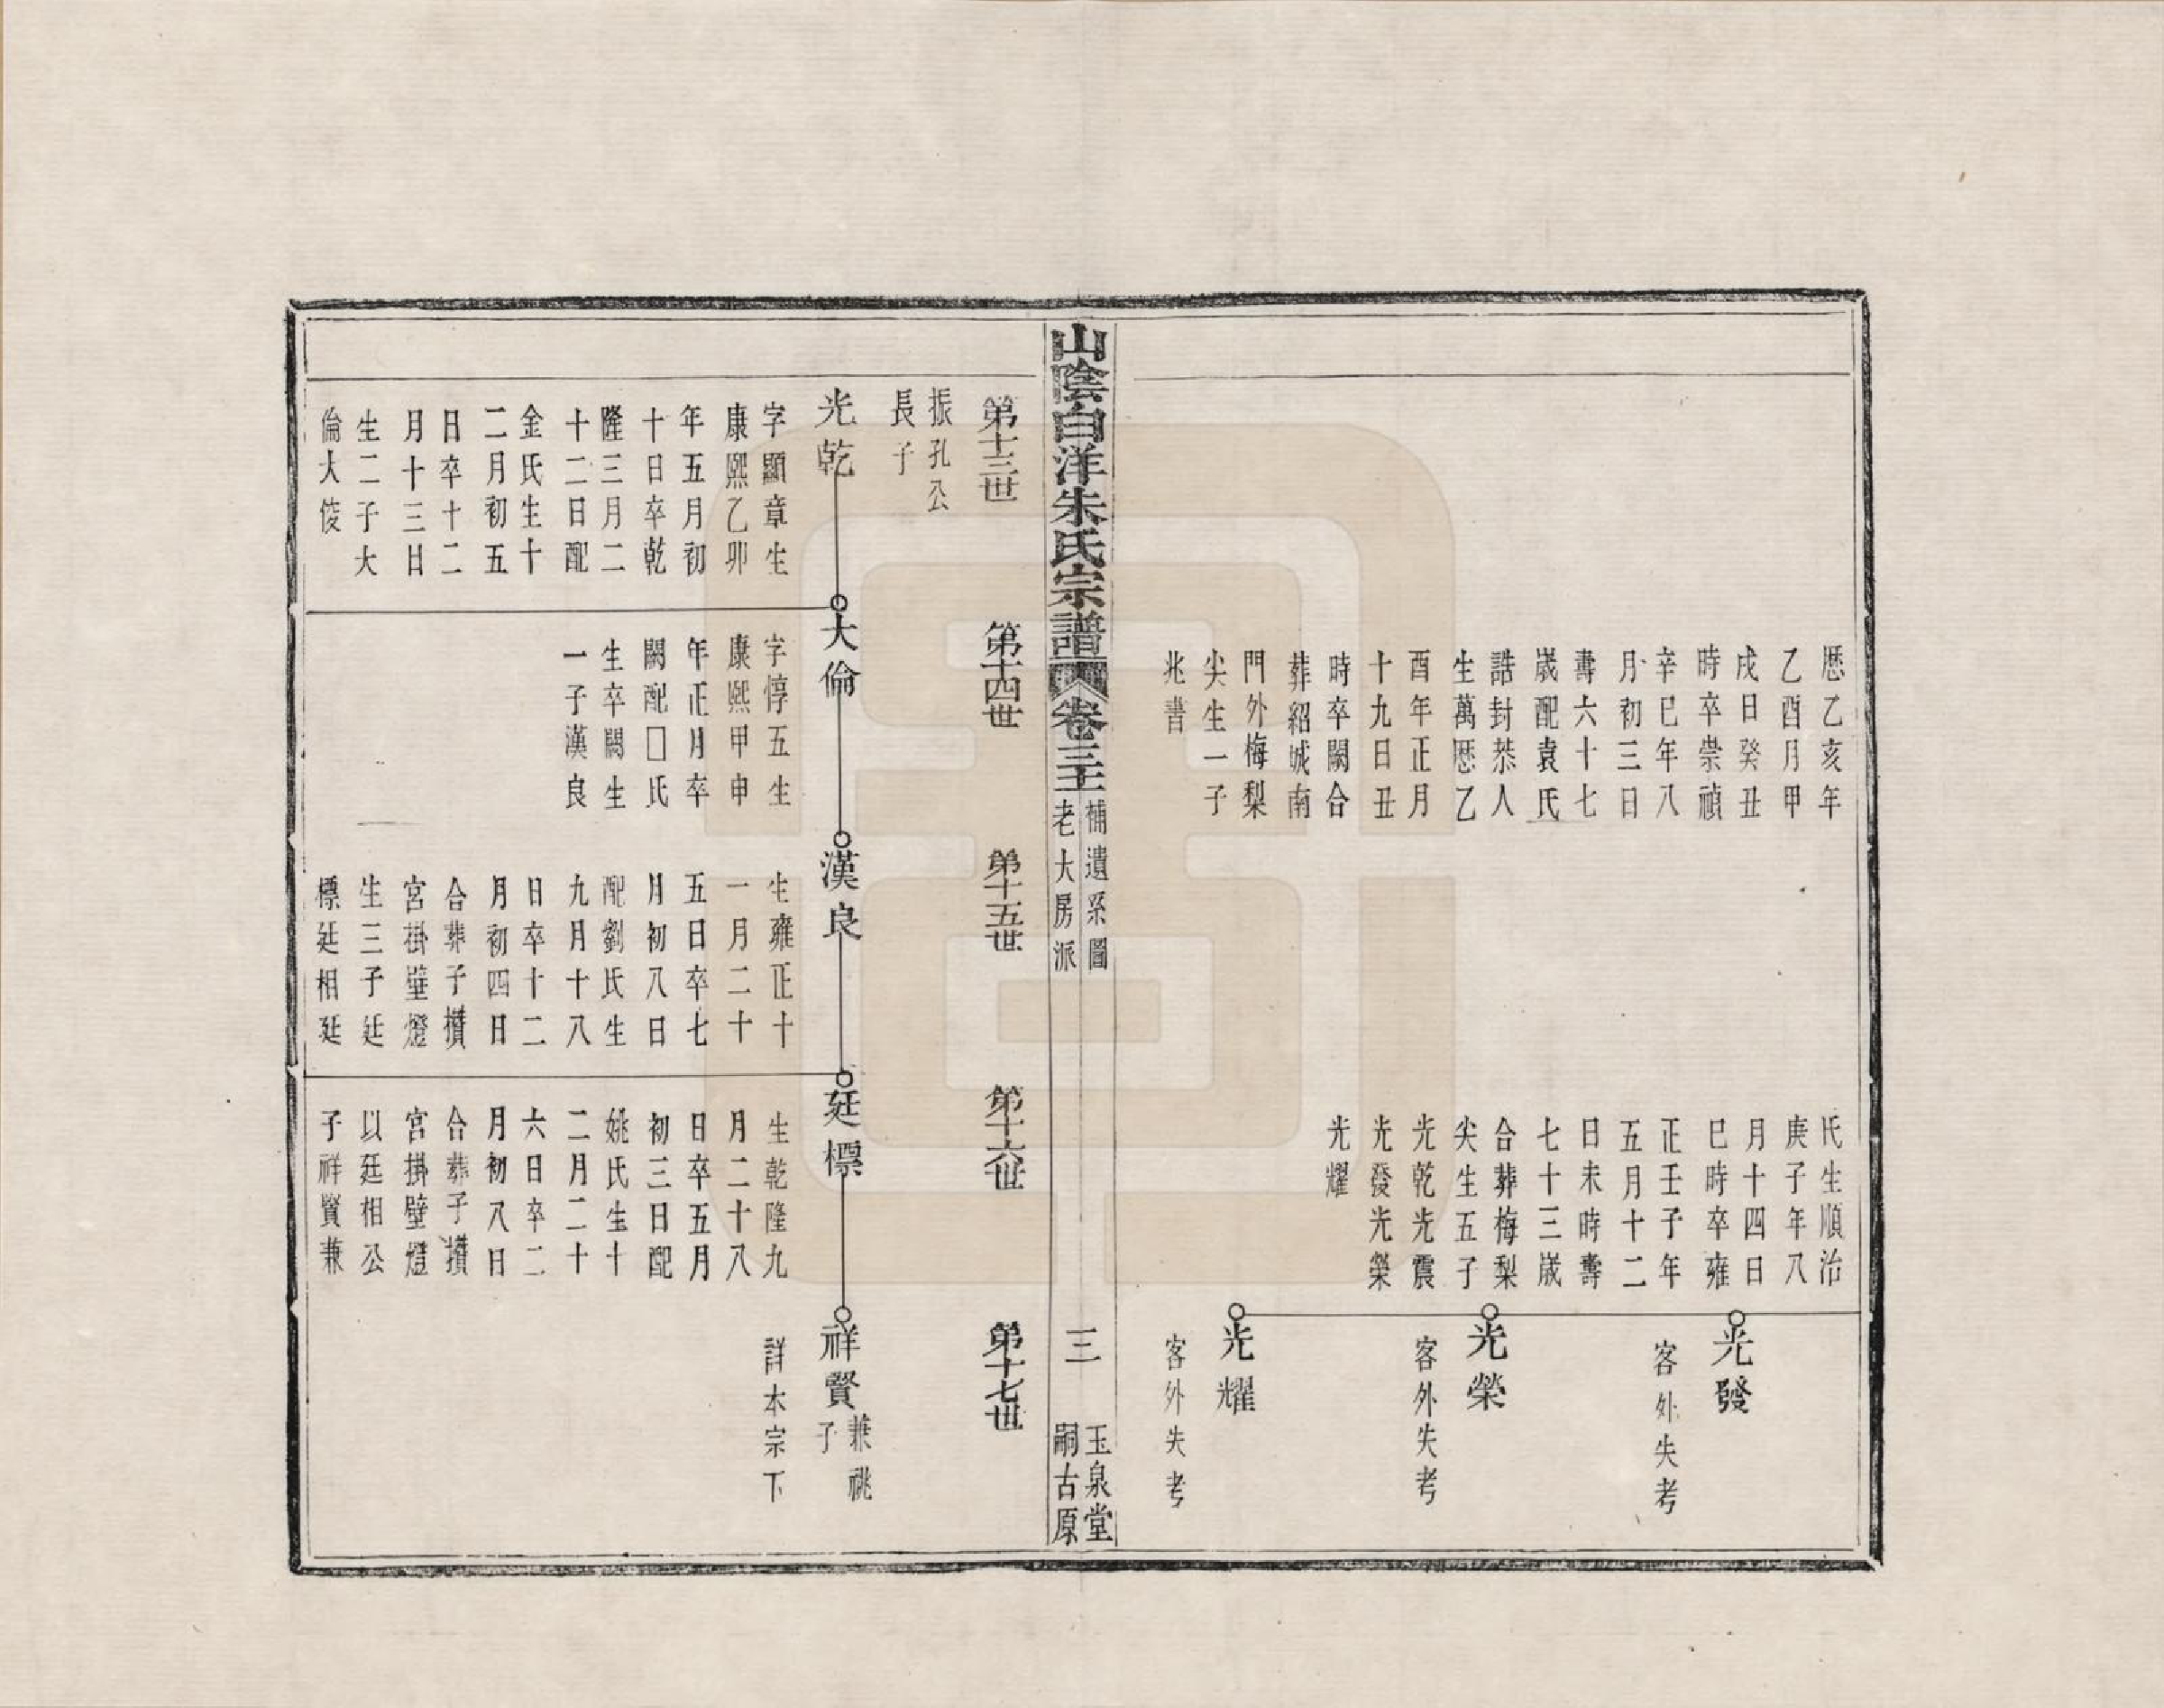 歷乙亥年
乙酉月甲
戌日癸丑
時卒崇禎
辛巳年八
月初三日
壽六十七
歲配袁氏
誥封恭人
生萬歷乙
酉年正月
十九日丑
時卒闕合
葬紹城南
門外梅梨
尖生一子
兆書
氏生順治
庚子年八
月十四日
巳時卒雍
正壬子年
五月十二
日未時壽
七十三歲
合葬梅梨
尖生五子
光乾光震
光發光榮
光耀
光發
客外失考
光榮
客外失考
光耀
客外失考
山陰白洋朱氏宗譜
卷三十二
補遺系圖
老大房派
三
玉泉堂
嗣古原
第十三世
振孔公
長子
光乾
字顯章生
康熙乙卯
年五月初
十日卒乾
隆三月二
十二日配
金氏生十
二月初五
日卒十二
月十三日
生二子大
倫大俊
第十四世
大倫
字惇五生
康熙甲申
年正月卒
闕配囗氏
生卒闕生
一子漢良
第十五世
漢良
生雍正十
一月二十
五日卒七
月初八日
配劉氏生
九月十八
日卒十二
月初四日
合葬子攢
宮掛壁燈
生三子廷
標廷相廷
第十六世
廷標
生乾隆九
月二十八
日卒五月
初三日配
姚氏生十
二月二十
六日卒二
月初八日
合葬子攢
宮掛壁燈
以廷相公
子祥賢兼
第十七世
祥賢
兼祧
子
詳本宗下